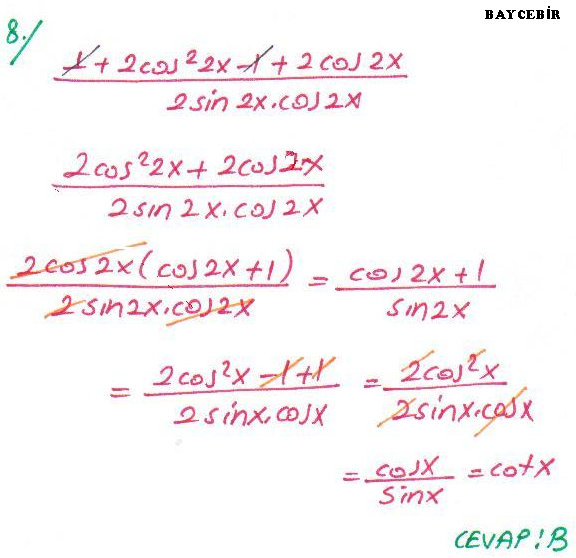 BAYCEBİR
8./
1 + 2cos²2x - 1 + 2cos2x
2sin2x.cos2x
2cos²2x + 2cos2x
2sin2x.cos2x
2cos2x(cos2x+1) = cos2x+1
2sin2x.cos2x sin2x
= 2cos²x -1+1 = 2cos²x
2sinx.cosx 2sinx.cosx
= cosx = cotx
sinx
CEVAP:B